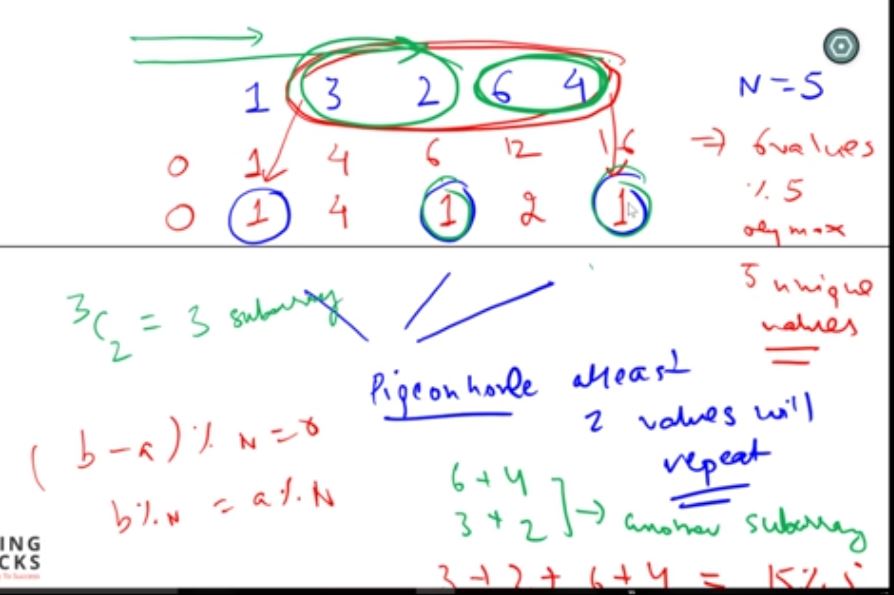 1 3 2 6 4 N = 5
0 1 4 6 12 16 => 6 values
0 1 4 1 2 1 % 5
only max
5 unique
values
3C2 = 3 subarray
Pigeonhole atleast
2 values will
repeat
(b-a) % N = 0
b % N = a % N
6 + 4
3 + 2 ] -> another subarray
3 + 2 + 6 + 4 = 15 %
ING
CKS
To Success